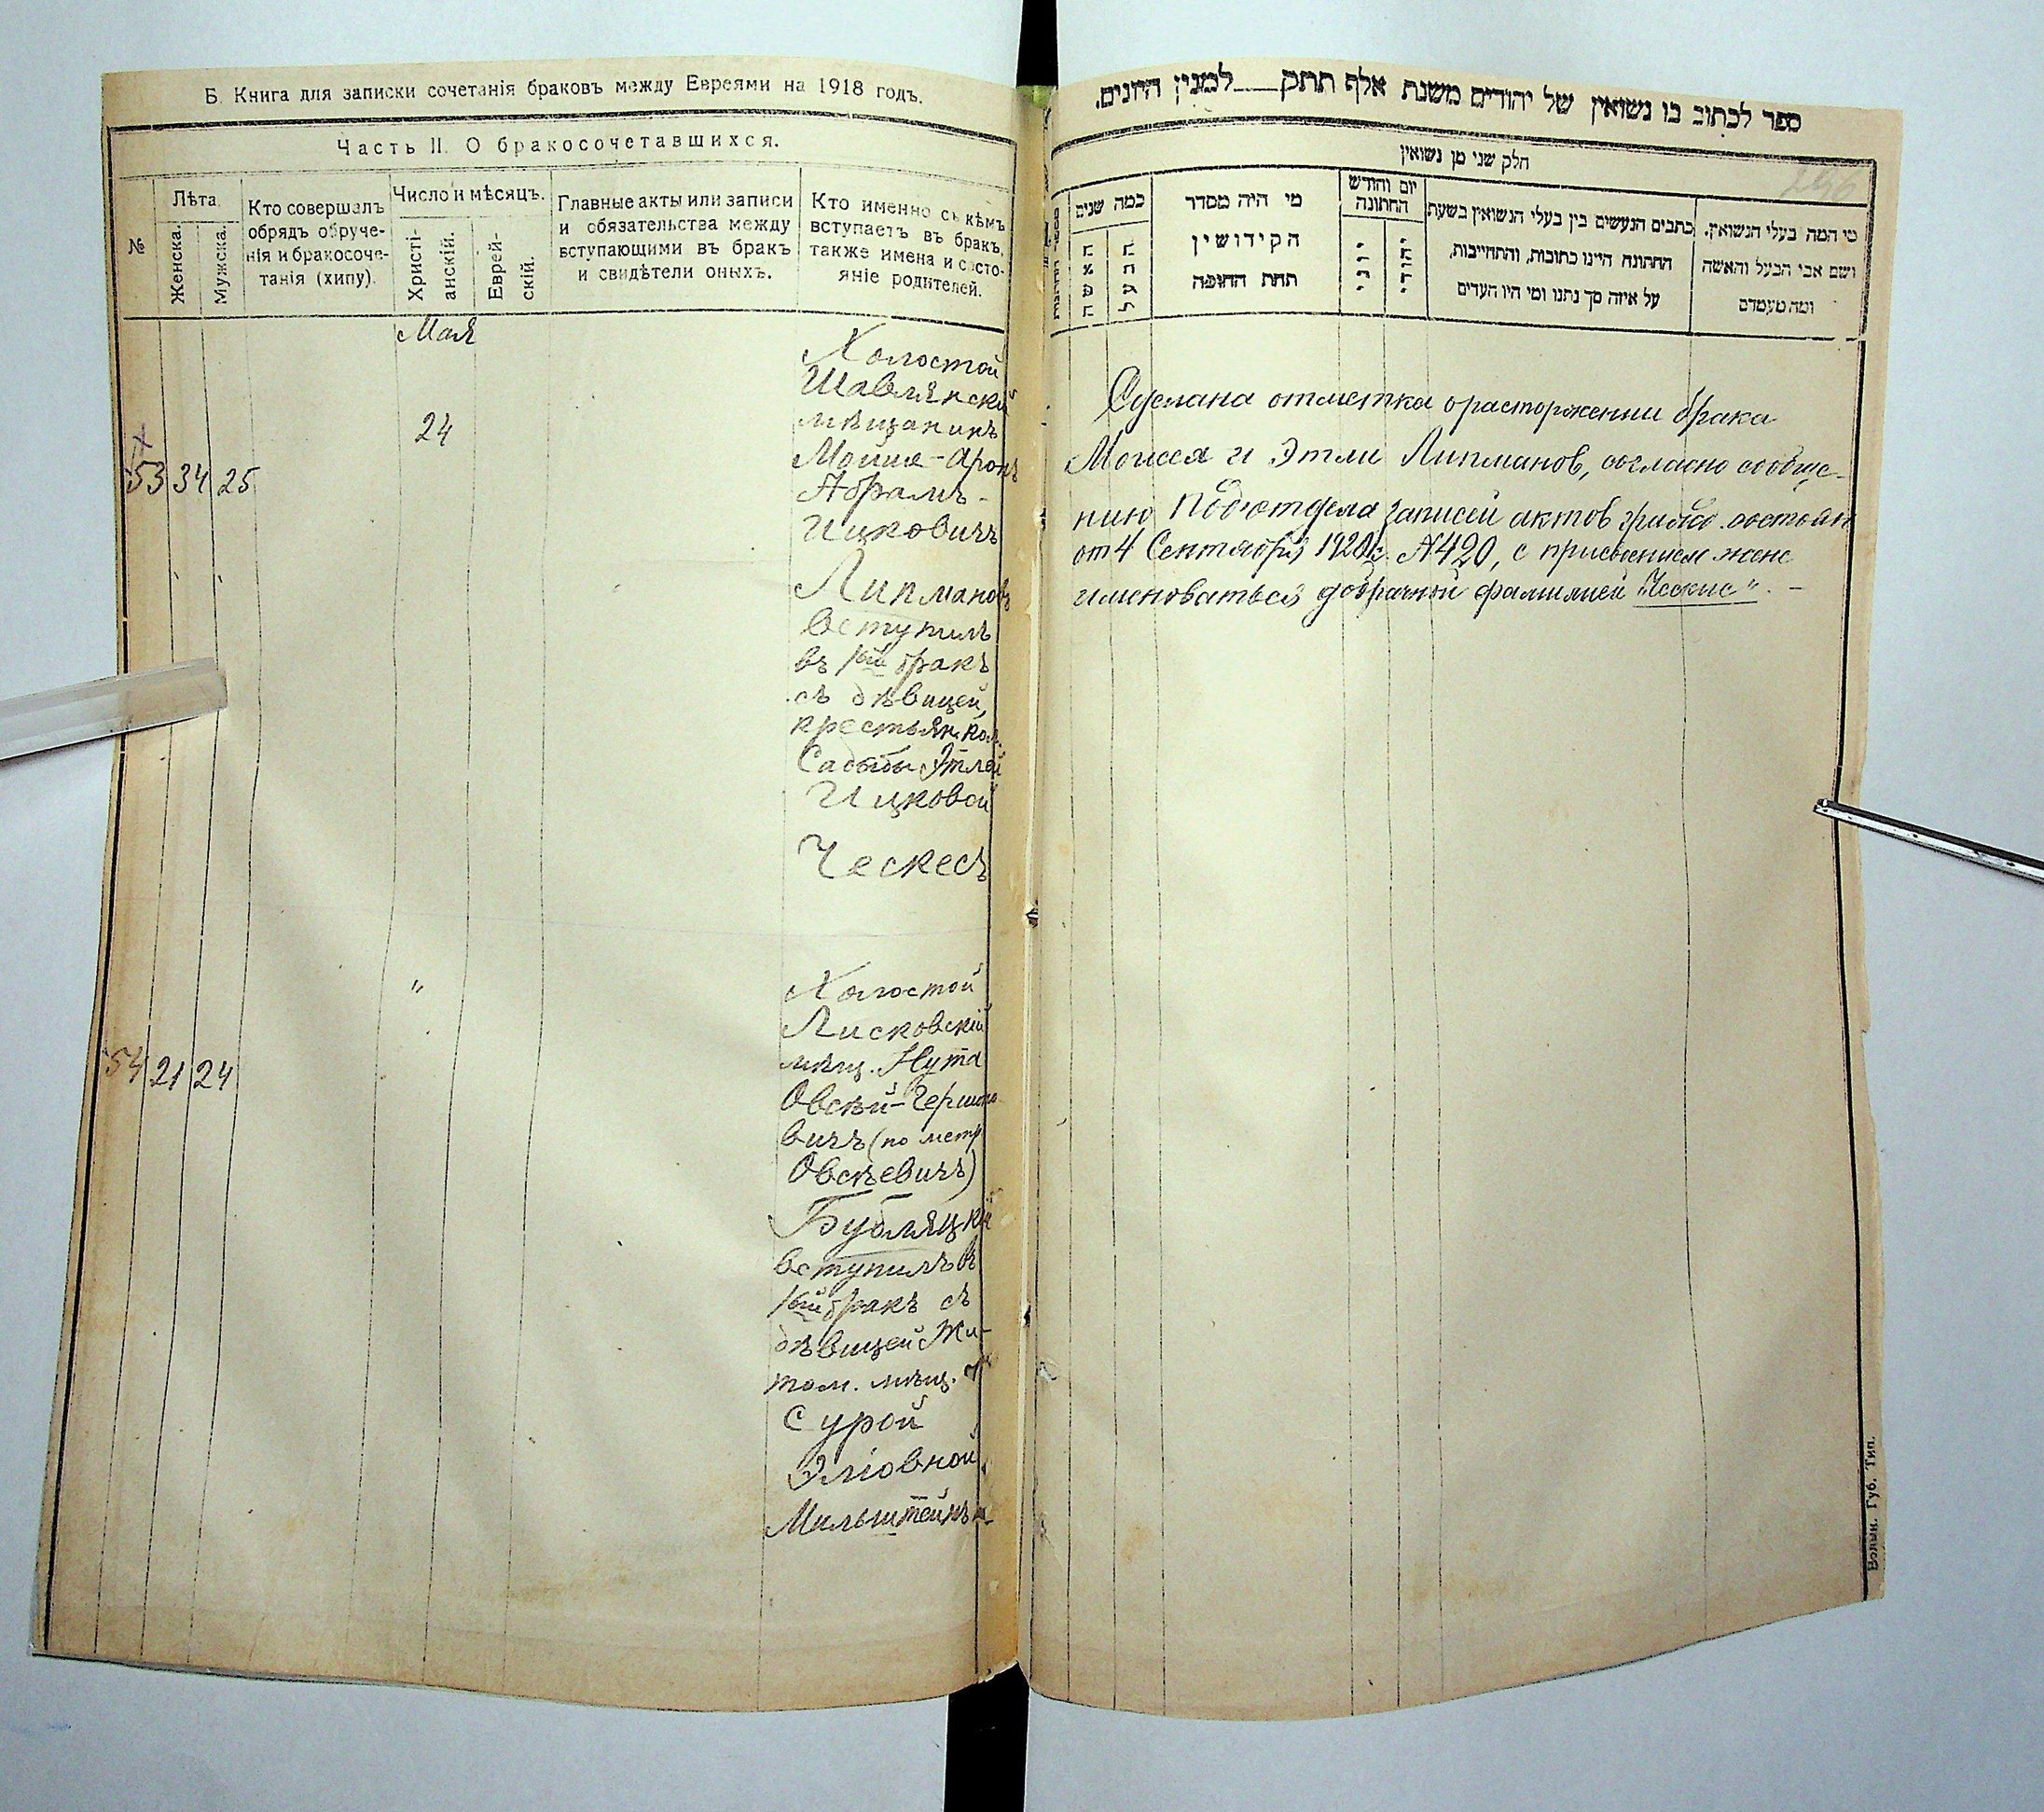 Б. Книга для записки сочетанія браковъ между Евреями на 1918 годъ.
Часть II. О бракосочетавшихся.
№
Лѣта.
Женска.
Мужска.
Кто совершалъ
обрядъ обруче-
нія и бракосоче-
танія (хипу).
Число и мѣсяцъ.
Христі-
анскій.
Еврей-
скій.
Главные акты или записи
и обязательства между
вступающими въ бракъ
и свидѣтели оныхъ.
Кто именно съ кѣмъ
вступаетъ въ бракъ,
также имена и состо-
яніе родителей.
Мая
53 34 25
24
Холостой
Шавлянскій
мѣщанинъ
Мойше-Аронъ
Абрамъ-
Ицковичъ
Липмановъ
вступилъ
въ 1ый бракъ
съ дѣвицей,
крестьян. кол.
Этлей
Ицковой
Ческесъ
54 21 24
"
Холостой
Лисковскій
мѣщ. Нута
Овсѣй-Гершко
вичъ (по метр
Овсѣевичъ)
Бубляцкій
вступилъ въ
1ый бракъ съ
дѣвицей Жи-
том. мѣщ.
Сурой
Эліовной
Мильштейнъ
ספר לכתוב בו נשואין של יהודים משנת אלף תתק___למנין היונים.
חלק שני מן נשואין
כמה שנים
האשה
הבעל
מי היה מסדר
הקידושין
תחת החופה
יום וחודש
החתונה
יוני
יהודי
כתבים הנעשים בין בעלי הנשואין בשעת
החתונה היינו כתובות, והתחייבות,
על איזה סך נתנו ומי היו העדים
מי המה בעלי הנשואין.
ושם אבי הבעל והאשה
ומה מעמדם
Сделана отметка о расторжении брака
Моисея и Этли Липманов, согласно сообще-
нию Подотдела записей актов гражд. состоян
от 4 Сентября 1920 г. №420, с присвоением жене
именоваться добрачной фамилией „Ческис". –
Волын. Губ. Тип.